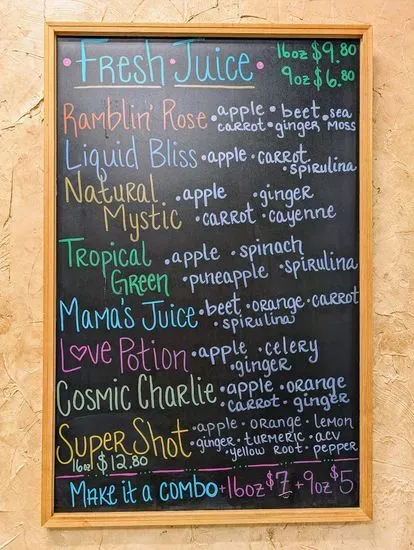 • Fresh • Juice • 16oz $9.80
9oz $6.80
Ramblin' Rose • apple • beet • sea
carrot • ginger moss
Liquid Bliss • apple • carrot
• spirulina
Natural • apple • ginger
Mystic • carrot • cayenne
Tropical • apple • spinach
Green • pineapple • spirulina
Mama's Juice • beet • orange • carrot
• spirulina
Love Potion • apple • celery
• ginger
Cosmic Charlie • apple • orange
carrot • ginger
Super Shot • apple • orange • lemon
• ginger • turmeric • acv
16oz $12.80 • yellow root • pepper
Make it a combo + 16oz $7 + 9oz $5